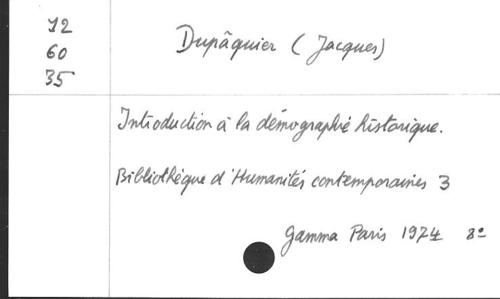 72
60
35
Dupâquier (Jacques)
Introduction à la démographie historique.
Bibliothèque d'Humanités contemporaines 3
Gamma Paris 1974 8°